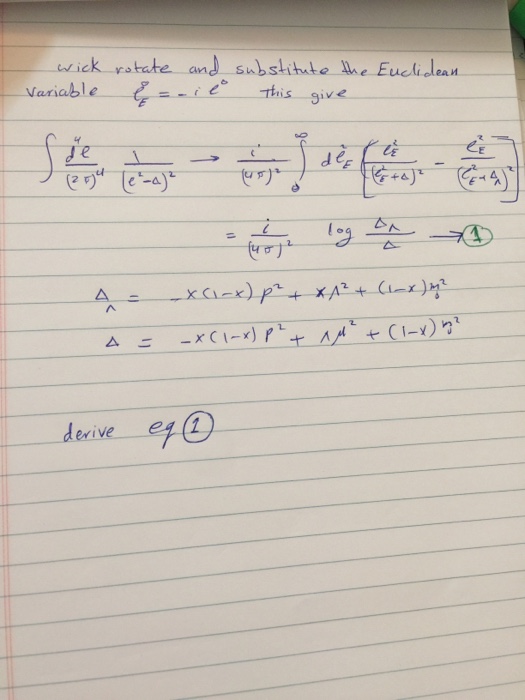 wick rotate and substitute the Euclidean
variable ℓ_E^0 = -i ℓ^0 This give
∫ d^4ℓ/(2π)^4 1/(ℓ^2-Δ)^2 → i/(4π)^2 ∫_0^∞ dℓ_E^2 [ ℓ_E^2/(ℓ_E^2+Δ)^2 - ℓ_E^2/(ℓ_E^2+Δ_Λ)^2 ]
= i/(4π)^2 log Δ_Λ/Δ → ①
Δ_Λ = -x(1-x) p^2 + xΛ^2 + (1-x) m_0^2
Δ = -x(1-x) p^2 + μ^2 + (1-x) m_0^2
derive eq ①